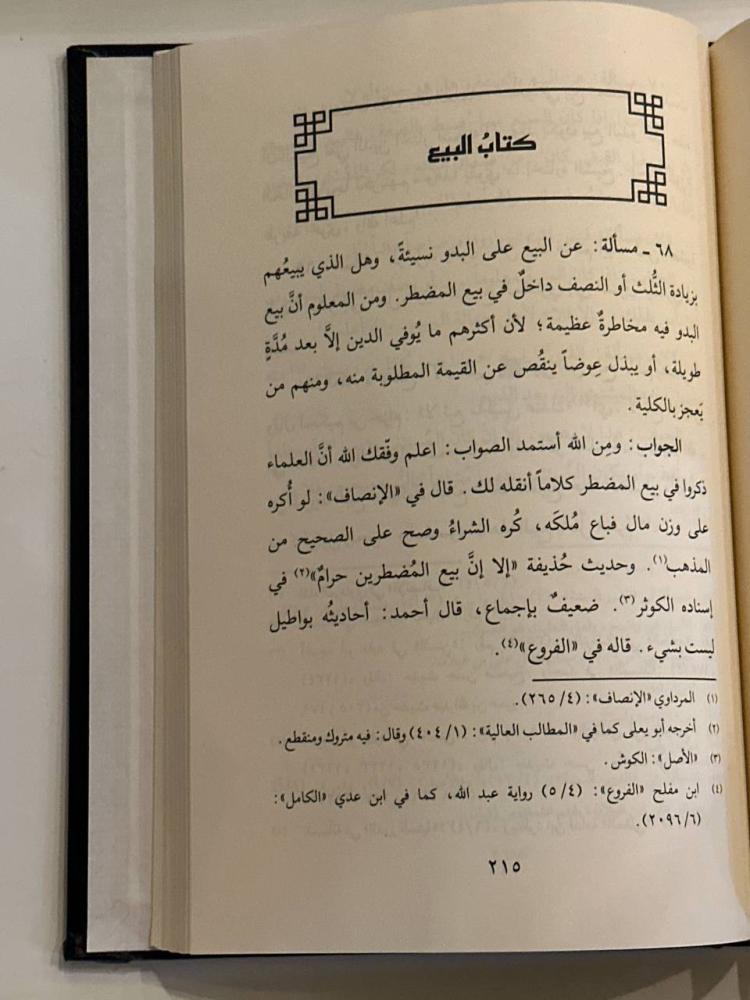 كتابُ البيع
٦٨ ـ مسألة: عن البيع على البدو نسيئةً، وهل الذي يبيعُهم
بزيادة الثُّلث أو النصف داخلٌ في بيع المضطر. ومن المعلوم أنَّ بيع
البدو فيه مخاطرةٌ عظيمة؛ لأن أكثرهم ما يُوفي الدين إلاَّ بعد مُدَّةٍ
طويلة، أو يبذل عِوضاً ينقُص عن القيمة المطلوبة منه، ومنهم من
يَعجز بالكلية.
الجواب: ومِن الله أستمد الصواب: اعلم وفّقك الله أنَّ العلماء
ذكروا في بيع المضطر كلاماً أنقله لك. قال في «الإنصاف»: لو أُكره
على وزن مال فباع مُلكَه، كُره الشراءُ وصح على الصحيح من
المذهب(١). وحديث حُذيفة «إلا إنَّ بيع المُضطرين حرامٌ»(٢) في
إسناده الكوثر(٣). ضعيفٌ بإجماع، قال أحمد: أحاديثُه بواطيل
ليست بشيء. قاله في «الفروع»(٤).
(١) المرداوي «الإنصاف»: (٢٦٥/٤).
(٢) أخرجه أبو يعلى كما في «المطالب العالية»: (٤٠٤/١) وقال: فيه متروك ومنقطع.
(٣) «الأصل»: الكوش.
(٤) ابن مفلح «الفروع»: (٥/٤) رواية عبد الله، كما في ابن عدي «الكامل»:
(٢٠٩٦/٦).
٢١٥